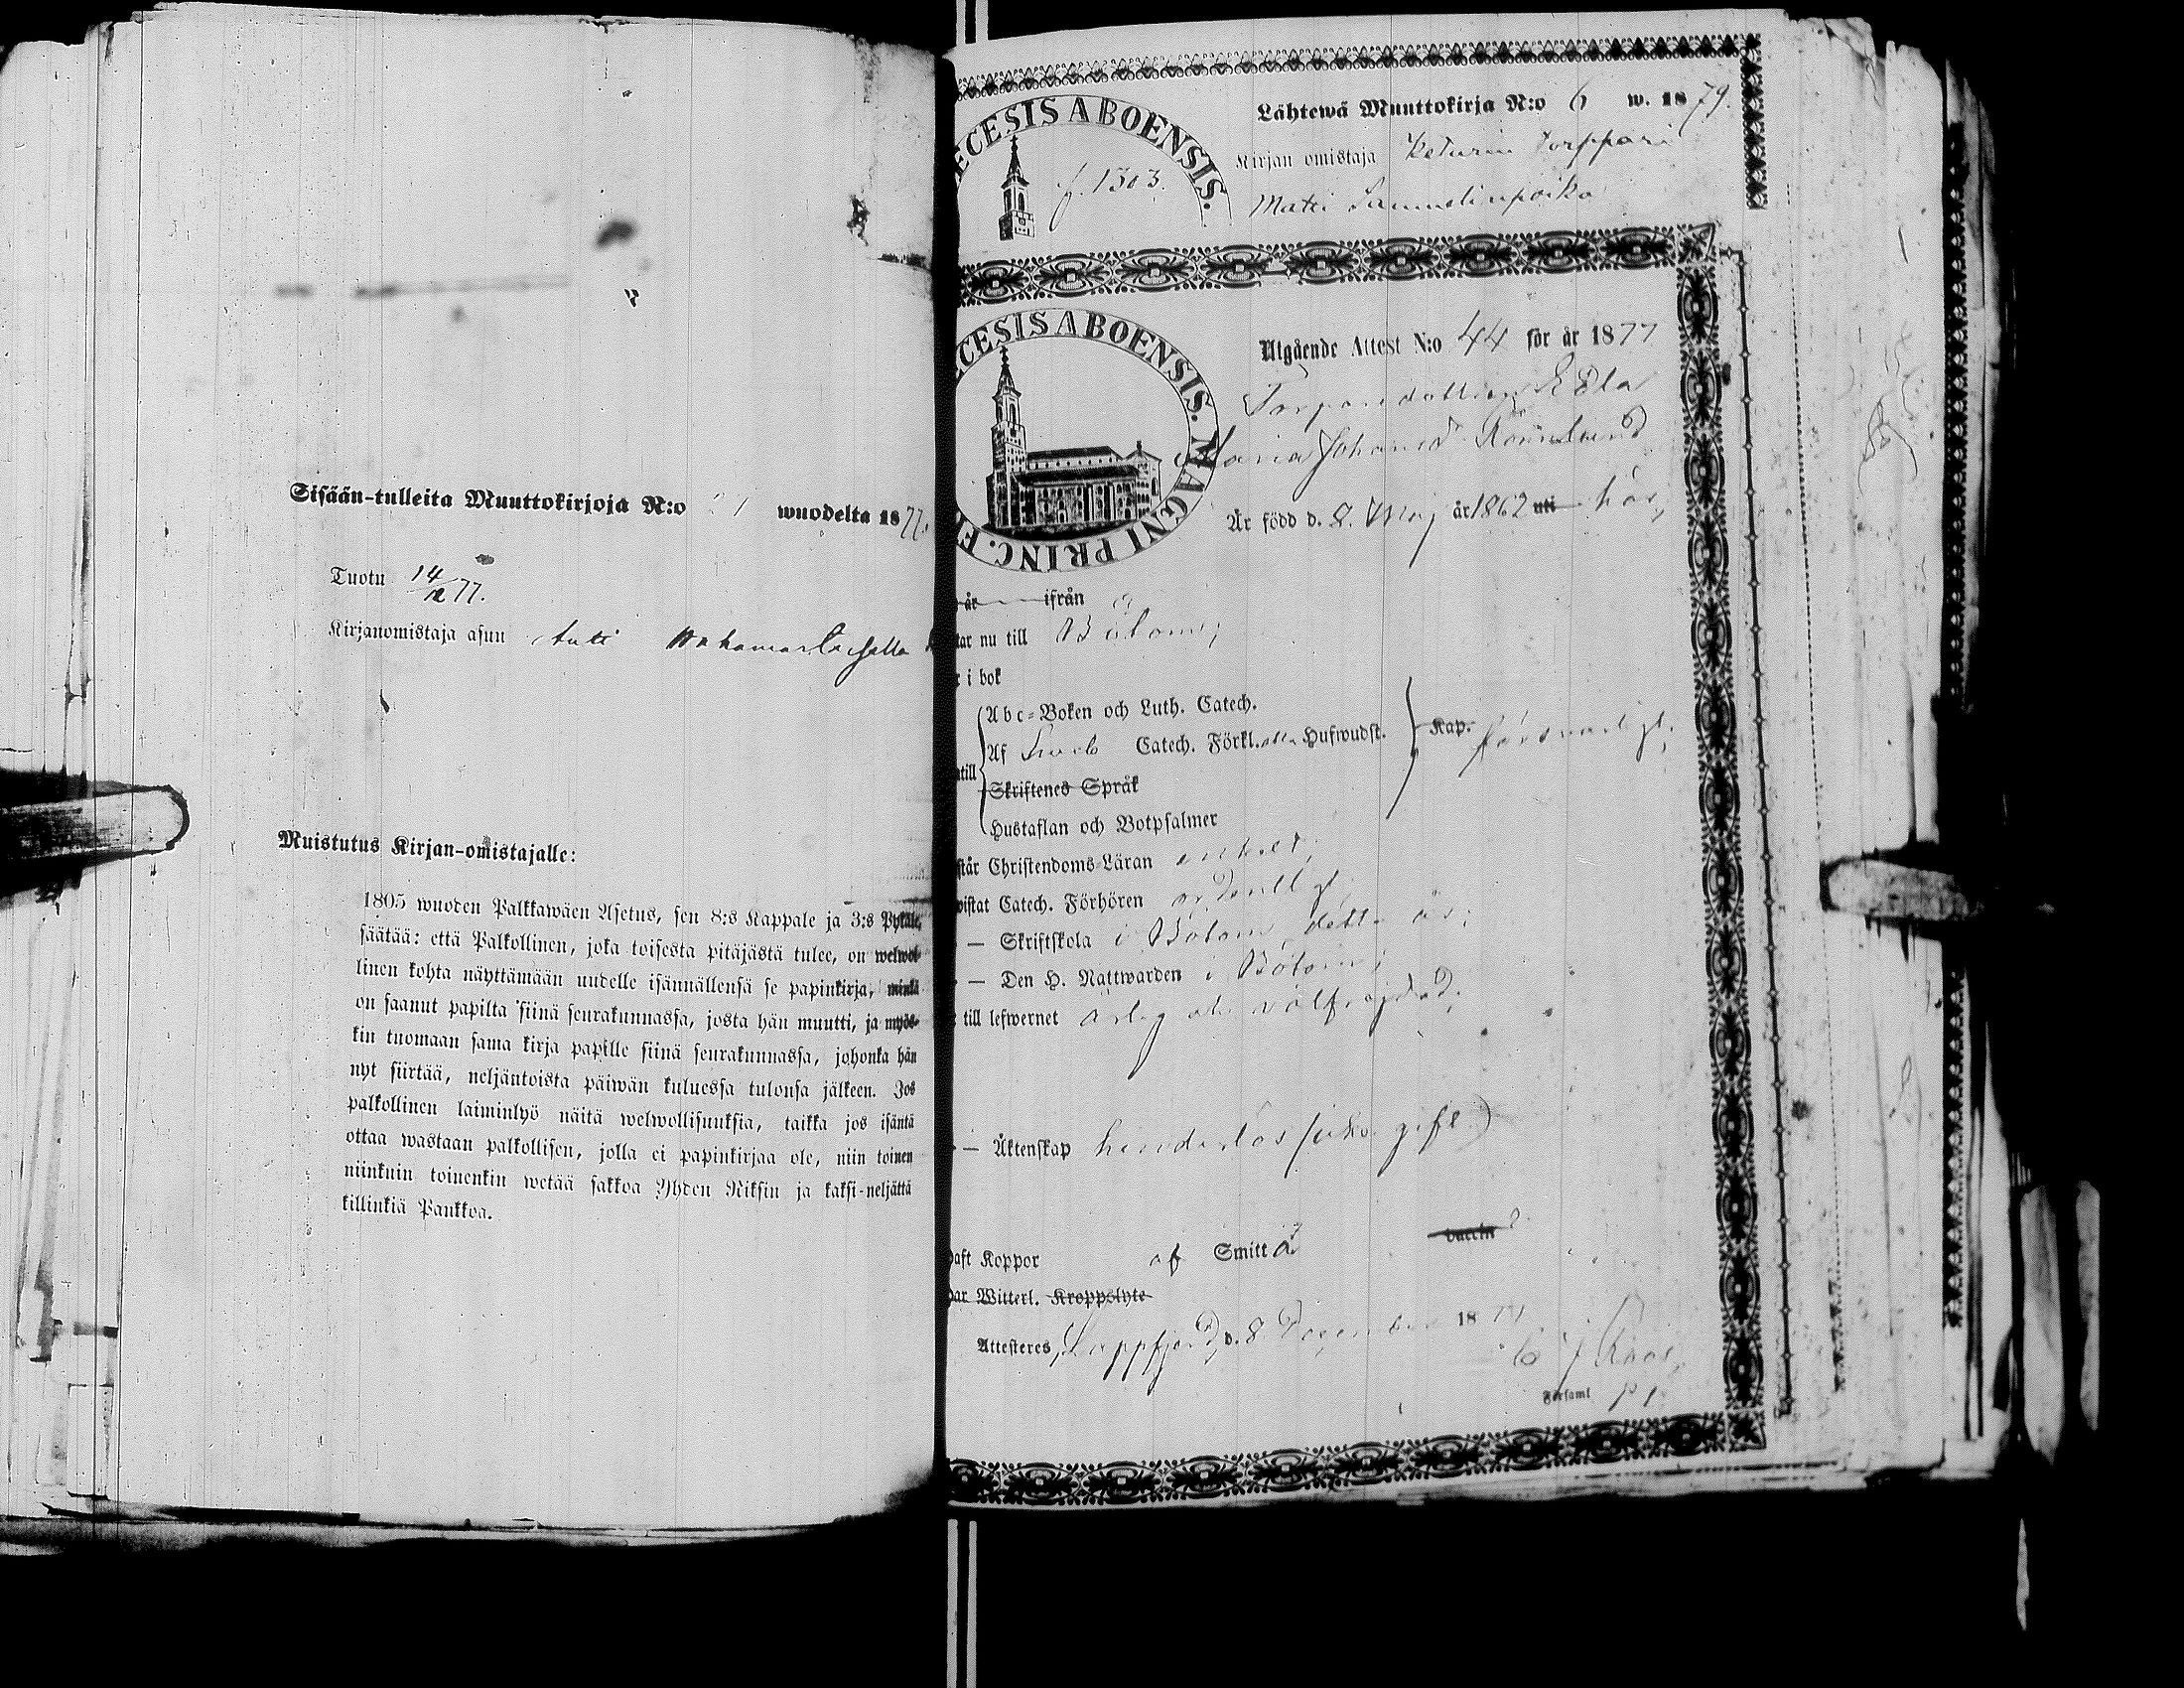 Sisään-tulleita Muuttokirjoja N:o 21 wuodelta 1877.
Tuotu 14/12 77.
Kirjanomistaja asuu
Muistutus Kirjan-omistajalle:
1805 wuoden Palkkawäen Asetus, sen 8:s Kappale ja 3:s Pykälä,
säätää: että Palkollinen, joka toisesta pitäjästä tulee, on welwol-
linen kohta näyttämään uudelle isännällensä se papinkirja, minkä
on saanut papilta siinä seurakunnassa, josta hän muutti, ja myös-
kin tuomaan sama kirja papille siinä seurakunnassa, johonka hän
nyt siirtää, neljäntoista päiwän kuluessa tulonsa jälkeen. Jos
palkollinen laiminlyö näitä welwollisuuksia, taikka jos isäntä
ottaa wastaan palkollisen, jolla ei papinkirjaa ole, niin toinen
niinkuin toinenkin wetää sakkoa Yhden Riksin ja kaksi-neljättä
killinkiä Pankkoa.
ECESIS ABOENSIS.
f. 1303.
Lähtewä Muuttokirja N:o 6 w. 1879.
Kirjan omistaja Keturin torppari
Matti Samuelinpoika
CESIS ABOENSIS. MAGNI PRINC. FI
Utgående Attest N:o 44 för år 1877
Torparedottren Edla
Maria Johansd. Rönnlund
Är född d. 8 Maj år 1862 uti här,
år ifrån
tar nu till Bötom;
r i bok
Abc-Boken och Luth. Catech.
Af Sweb Catech. Förkl. Hufwudst. Kap. försvarligt;
ntill
Skriftenes Språk
Hustaflan och Botpsalmer
står Christendoms-Läran enkelt;
wistat Catech. Förhören ordentligt;
— Skriftskola i Bötom detta år;
— Den H. Nattwarden i Bötom;
till lefwernet ärlig och välfrejdad;
— Äktenskap hinderlös (icke gift)
haft Koppor af Smitta
vaccin
har Witterl. Kroppslyte
Attesteres, Lappfjerd, d. 8 December 1877
Församl